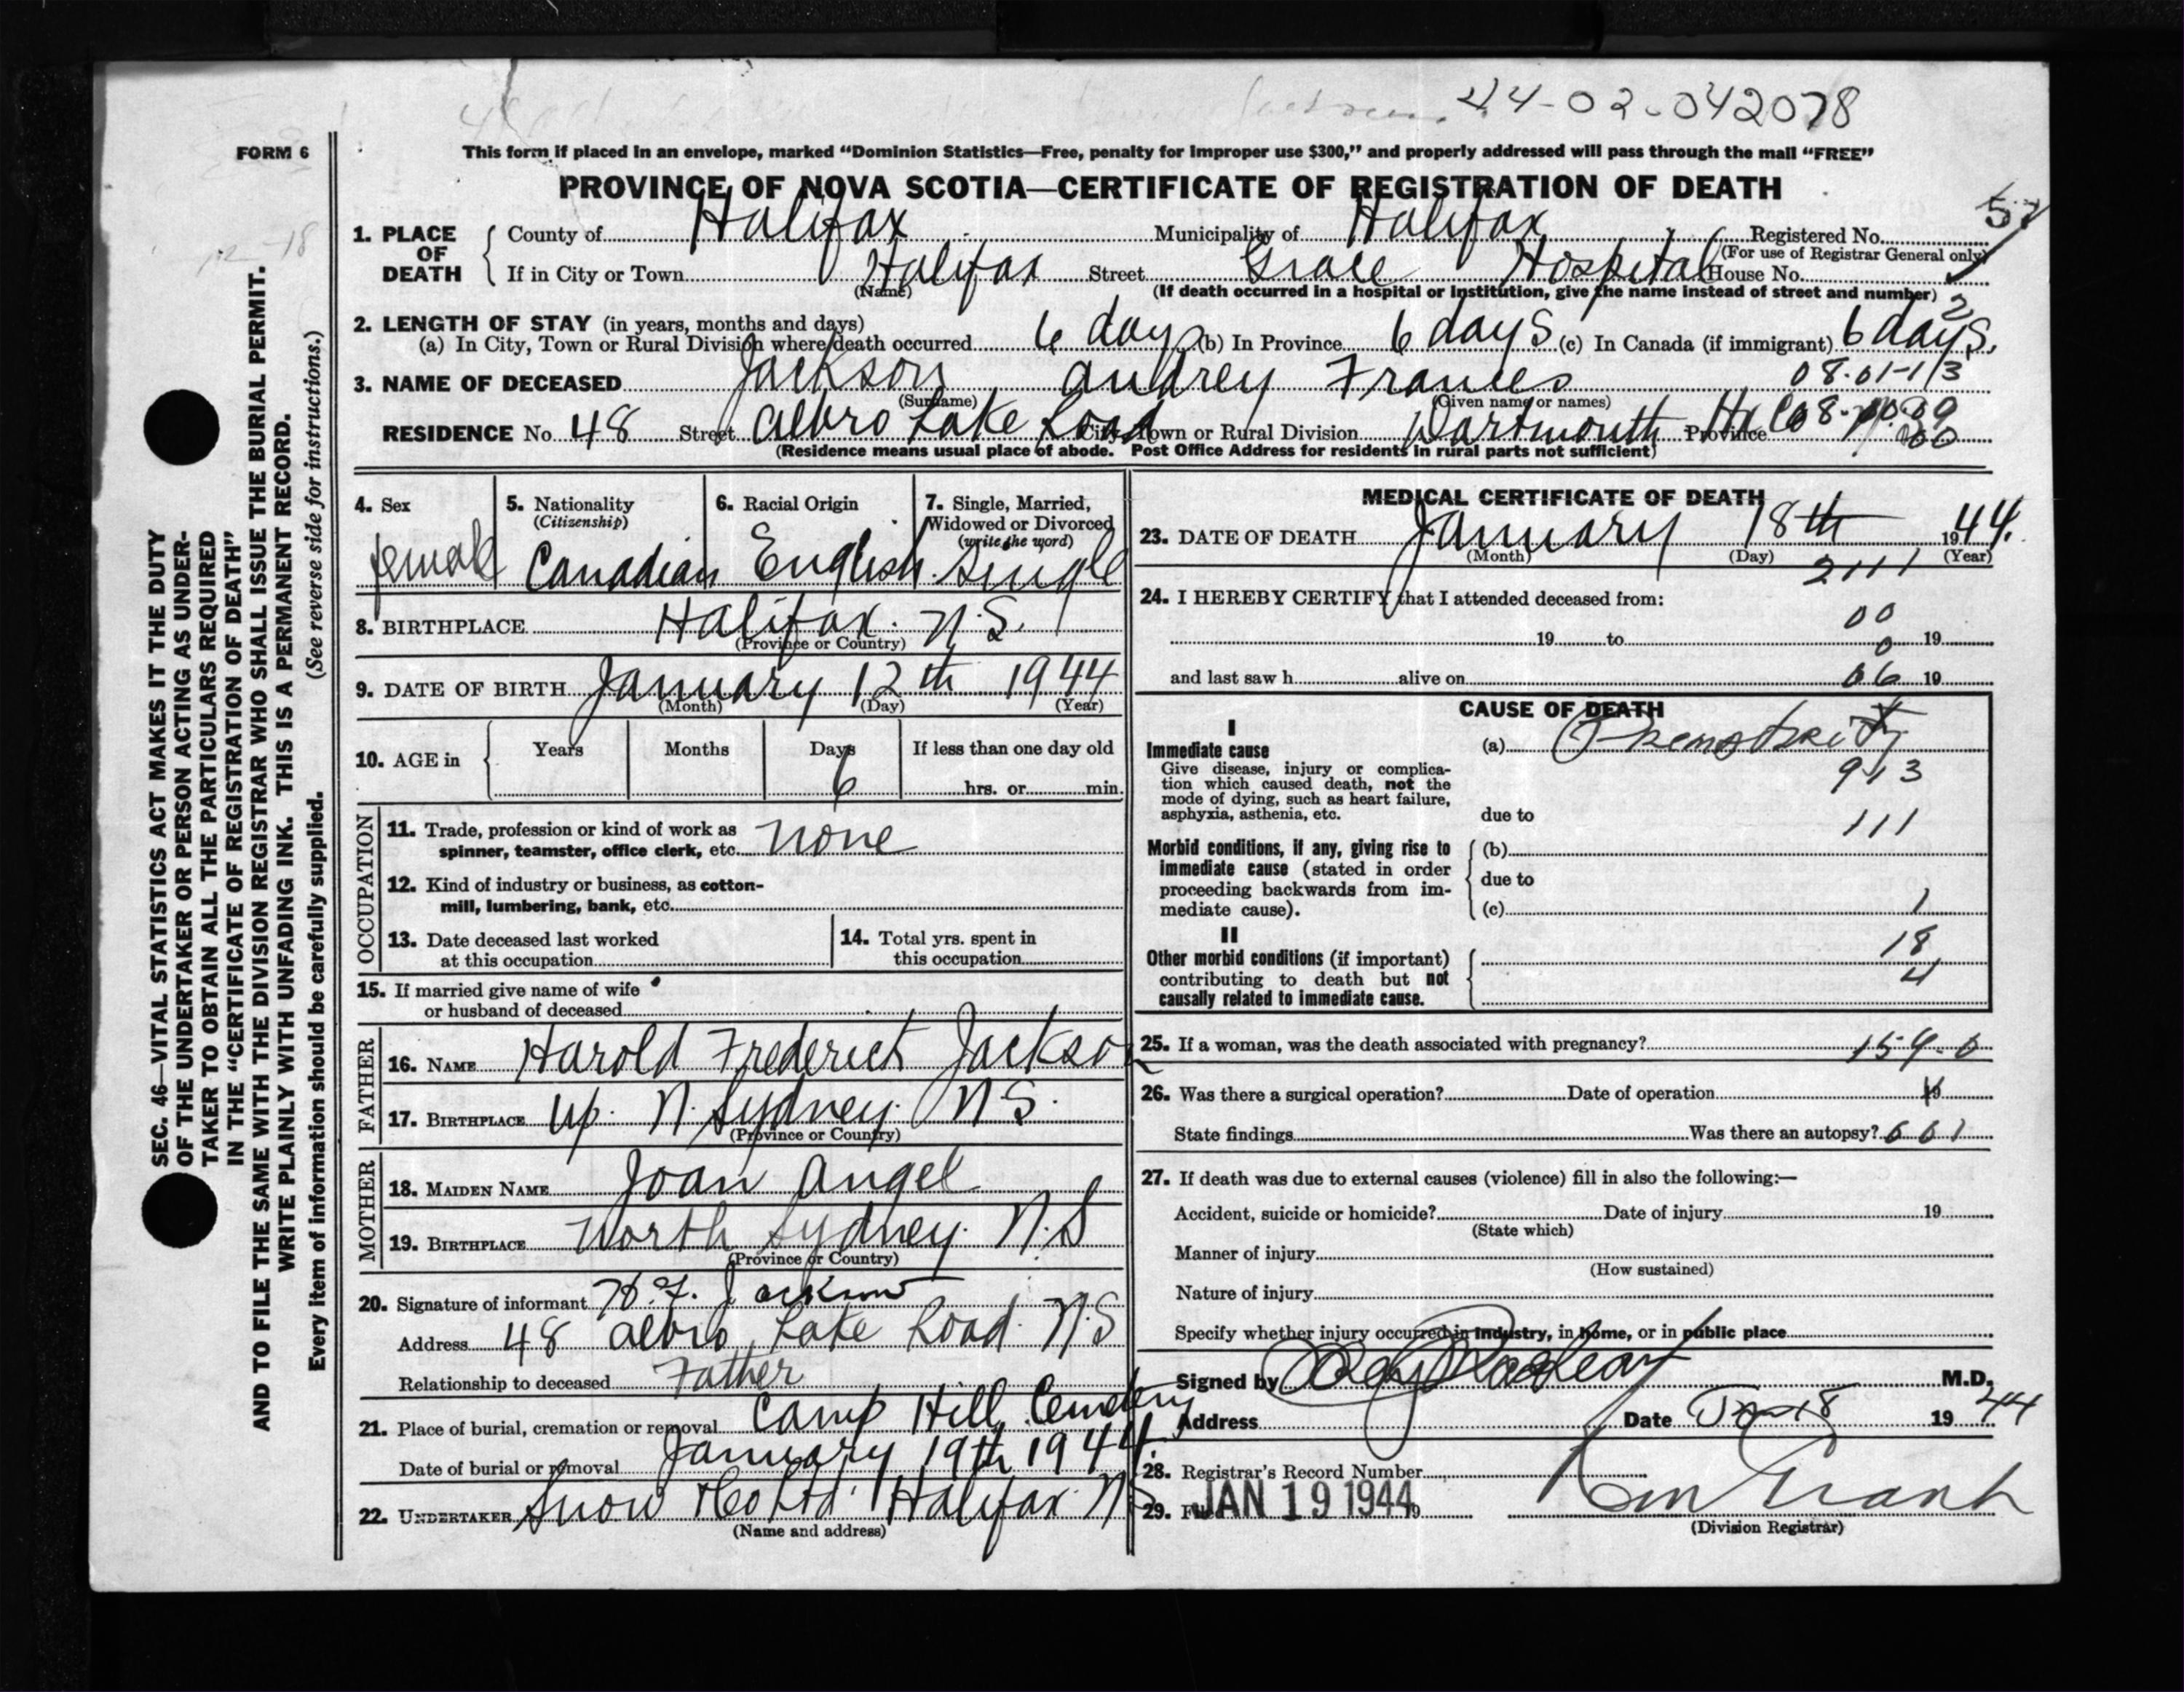 44-02-042078
FORM 6
This form if placed in an envelope, marked “Dominion Statistics—Free, penalty for improper use $300,” and properly addressed will pass through the mail “FREE”
PROVINCE OF NOVA SCOTIA—CERTIFICATE OF REGISTRATION OF DEATH
1. PLACE OF DEATH County of Halifax Municipality of Halifax Registered No.
(For use of Registrar General only)
If in City or Town Halifax Street Grace Hospital House No.
(Name) (If death occurred in a hospital or institution, give the name instead of street and number)
2. LENGTH OF STAY (in years, months and days) 2
(a) In City, Town or Rural Division where death occurred 6 days (b) In Province 6 days (c) In Canada (if immigrant) 6 days.
3. NAME OF DECEASED Jackson Audrey Frances 08-01-113
(Surname) (Given name or names)
RESIDENCE No. 48 Street Albro Lake Road City, Town or Rural Division Dartmouth Hx Co Province
(Residence means usual place of abode. Post Office Address for residents in rural parts not sufficient)
SEC. 46—VITAL STATISTICS ACT MAKES IT THE DUTY
OF THE UNDERTAKER OR PERSON ACTING AS UNDER-
TAKER TO OBTAIN ALL THE PARTICULARS REQUIRED
IN THE “CERTIFICATE OF REGISTRATION OF DEATH”
AND TO FILE THE SAME WITH THE DIVISION REGISTRAR WHO SHALL ISSUE THE BURIAL PERMIT.
WRITE PLAINLY WITH UNFADING INK. THIS IS A PERMANENT RECORD.
Every item of information should be carefully supplied. (See reverse side for instructions.)
4. Sex female
5. Nationality (Citizenship) Canadian
6. Racial Origin English
7. Single, Married, Widowed or Divorced (write the word) Single
8. BIRTHPLACE Halifax. N.S.
(Province or Country)
9. DATE OF BIRTH January 12th 1944
(Month) (Day) (Year)
10. AGE in Years Months Days If less than one day old
6 hrs. or min.
OCCUPATION
11. Trade, profession or kind of work as
spinner, teamster, office clerk, etc. none
12. Kind of industry or business, as cotton-
mill, lumbering, bank, etc.
13. Date deceased last worked
at this occupation
14. Total yrs. spent in
this occupation
15. If married give name of wife
or husband of deceased
FATHER
16. NAME Harold Frederick Jackson
17. BIRTHPLACE Up. N. Sydney. N S.
(Province or Country)
MOTHER
18. MAIDEN NAME Joan Angel
19. BIRTHPLACE North Sydney. N.S
(Province or Country)
20. Signature of informant H. F. Jackson
Address 48 Albro Lake Road. N.S
Relationship to deceased Father
21. Place of burial, cremation or removal Camp Hill Cemetery
Date of burial or removal January 19th 1944.
22. UNDERTAKER Snow & Co Ltd. Halifax N.S
(Name and address)
MEDICAL CERTIFICATE OF DEATH
23. DATE OF DEATH January 18th 1944.
(Month) (Day) (Year)
2111
24. I HEREBY CERTIFY that I attended deceased from:
00
19 to 19
0
and last saw h alive on 06 19
CAUSE OF DEATH
I
Immediate cause (a) Prematurity
Give disease, injury or complica-
tion which caused death, not the
mode of dying, such as heart failure,
asphyxia, asthenia, etc.
913
due to 111
Morbid conditions, if any, giving rise to
immediate cause (stated in order
proceeding backwards from im-
mediate cause).
(b)
due to
(c) 1
II
Other morbid conditions (if important)
contributing to death but not
causally related to immediate cause.
18
4
25. If a woman, was the death associated with pregnancy? 159-0
26. Was there a surgical operation? Date of operation 19
State findings Was there an autopsy? 661
27. If death was due to external causes (violence) fill in also the following:—
Accident, suicide or homicide? Date of injury 19
(State which)
Manner of injury
(How sustained)
Nature of injury
Specify whether injury occurred in industry, in home, or in public place
Signed by M.D.
Address Date Jan 18 1944
28. Registrar's Record Number
29. JAN 19 1944 19
(Division Registrar)